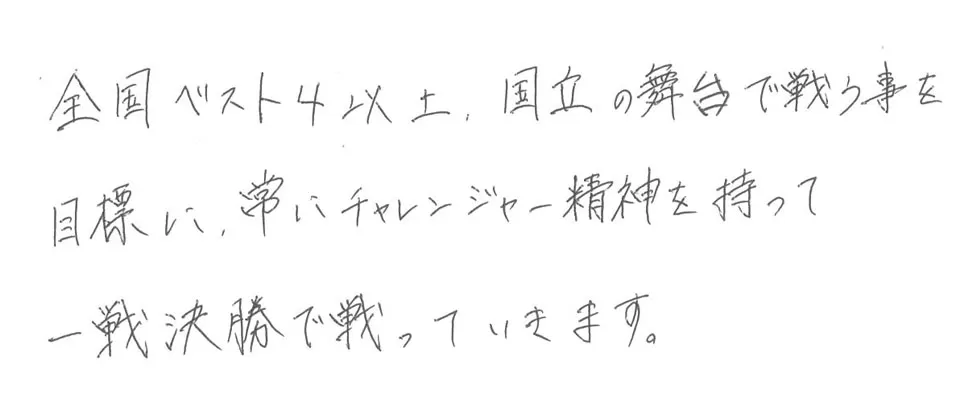 全国ベスト4以上、国立の舞台で戦う事を
目標に、常にチャレンジャー精神を持って
一戦決勝で戦っていきます。